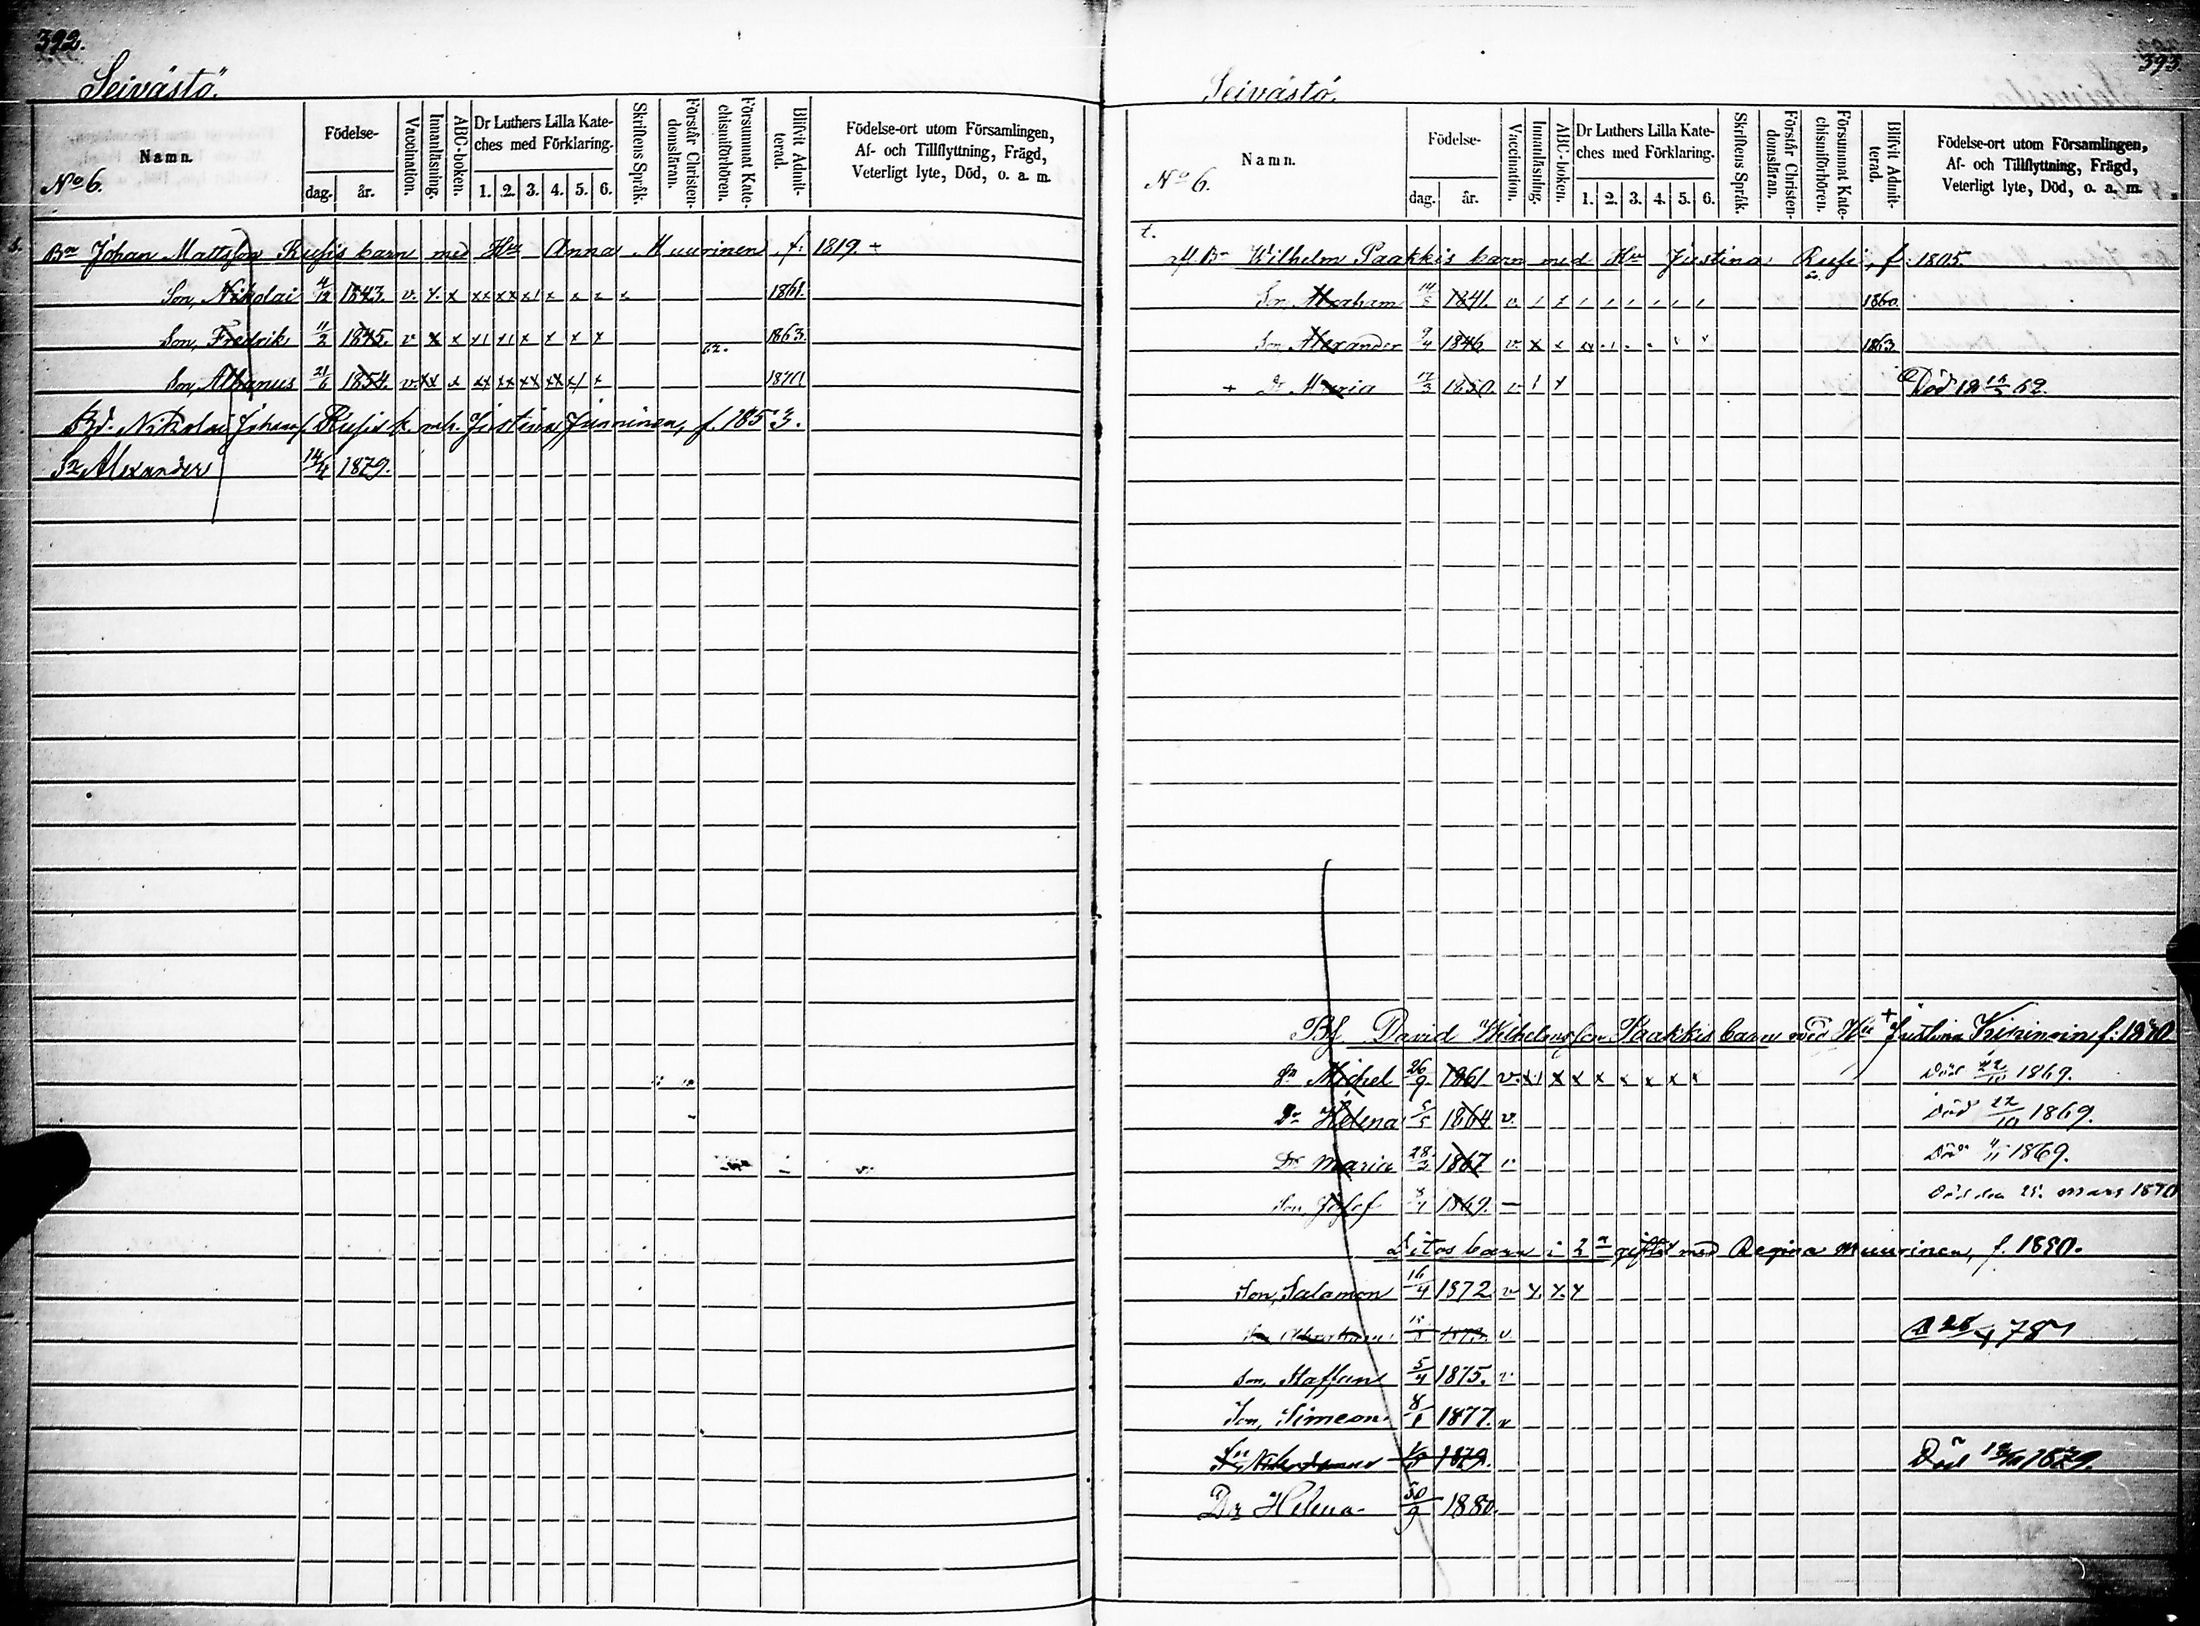 392.
Seivästö.
Namn.
No 6.
Födelse-
dag. år.
Vaccination.
Innanläsning.
ABC-boken.
Dr Luthers Lilla Kate-
ches med Förklaring.
1. 2. 3. 4. 5. 6.
Skriftens Språk.
Förstår Christen-
domsläran.
Försummat Kate-
chismiförhören.
Blifvit Admit-
terad.
Födelse-ort utom Församlingen,
Af- och Tillflyttning, Frägd,
Veterligt lyte, Död, o. a. m.
Bn Johan Mattsson Rusis barn med Hu Anna Muurinen, f: 1819. +
Son, Nikolai 1843. v. x x xx xx x x x x x 1861.
Son, Fredrik 11/2 1845. v x x x x x x 1863.
62.
Son, Albanus 21/6 1854. v. xx x xx xx xx xx x x 1870
Bd. Nikolai Johans. Rusis b. m. h. Justina Junninen, f. 1853.
Sn Alexander 14/4 1879.
393.
Seivästö.
Namn.
No 6.
Födelse-
dag. år.
Vaccination.
Innanläsning.
ABC-boken.
Dr Luthers Lilla Kate-
ches med Förklaring.
1. 2. 3. 4. 5. 6.
Skriftens Språk.
Förstår Christen-
domsläran.
Försummat Kate-
chismiförhören.
Blifvit Admit-
terad.
Födelse-ort utom Församlingen,
Af- och Tillflyttning, Frägd,
Veterligt lyte, Död, o. a. m.
t.
afl. Bn Wilhelm Paakkis barn med Hu Justina Rusi, f: 1805.
Sn Abraham 1841. v. 1860
Son, Alexander 9/4 1846 v. x x 1863
+ Dr Maria 17/3 1850. v. Död 62.
Bs David Wilhelmsson Paakkis barn med Hu + Justina Kiriminin f: 1840
Sn Michel 26/9 1861 v. x x x x x x x x Död 22/10 1869.
Dr Helena 1864 v. Död 22/10 1869.
Dr Maria 28/3 1867 v Död 1869.
Son, Josef 1869. — Död den 25. mars 1870
Ditos barn i 2a giftet med Regina Muurinen, f. 1850.
Son, Salamon 16/4 1872 v x. x. x
Son Abraham 1873. v. 78
Son, Staffan 5/4 1875. v
Son, Simeon 8/1 1877. v
Sn 1879. Död 1879.
Dr Helena 30/9 1880.